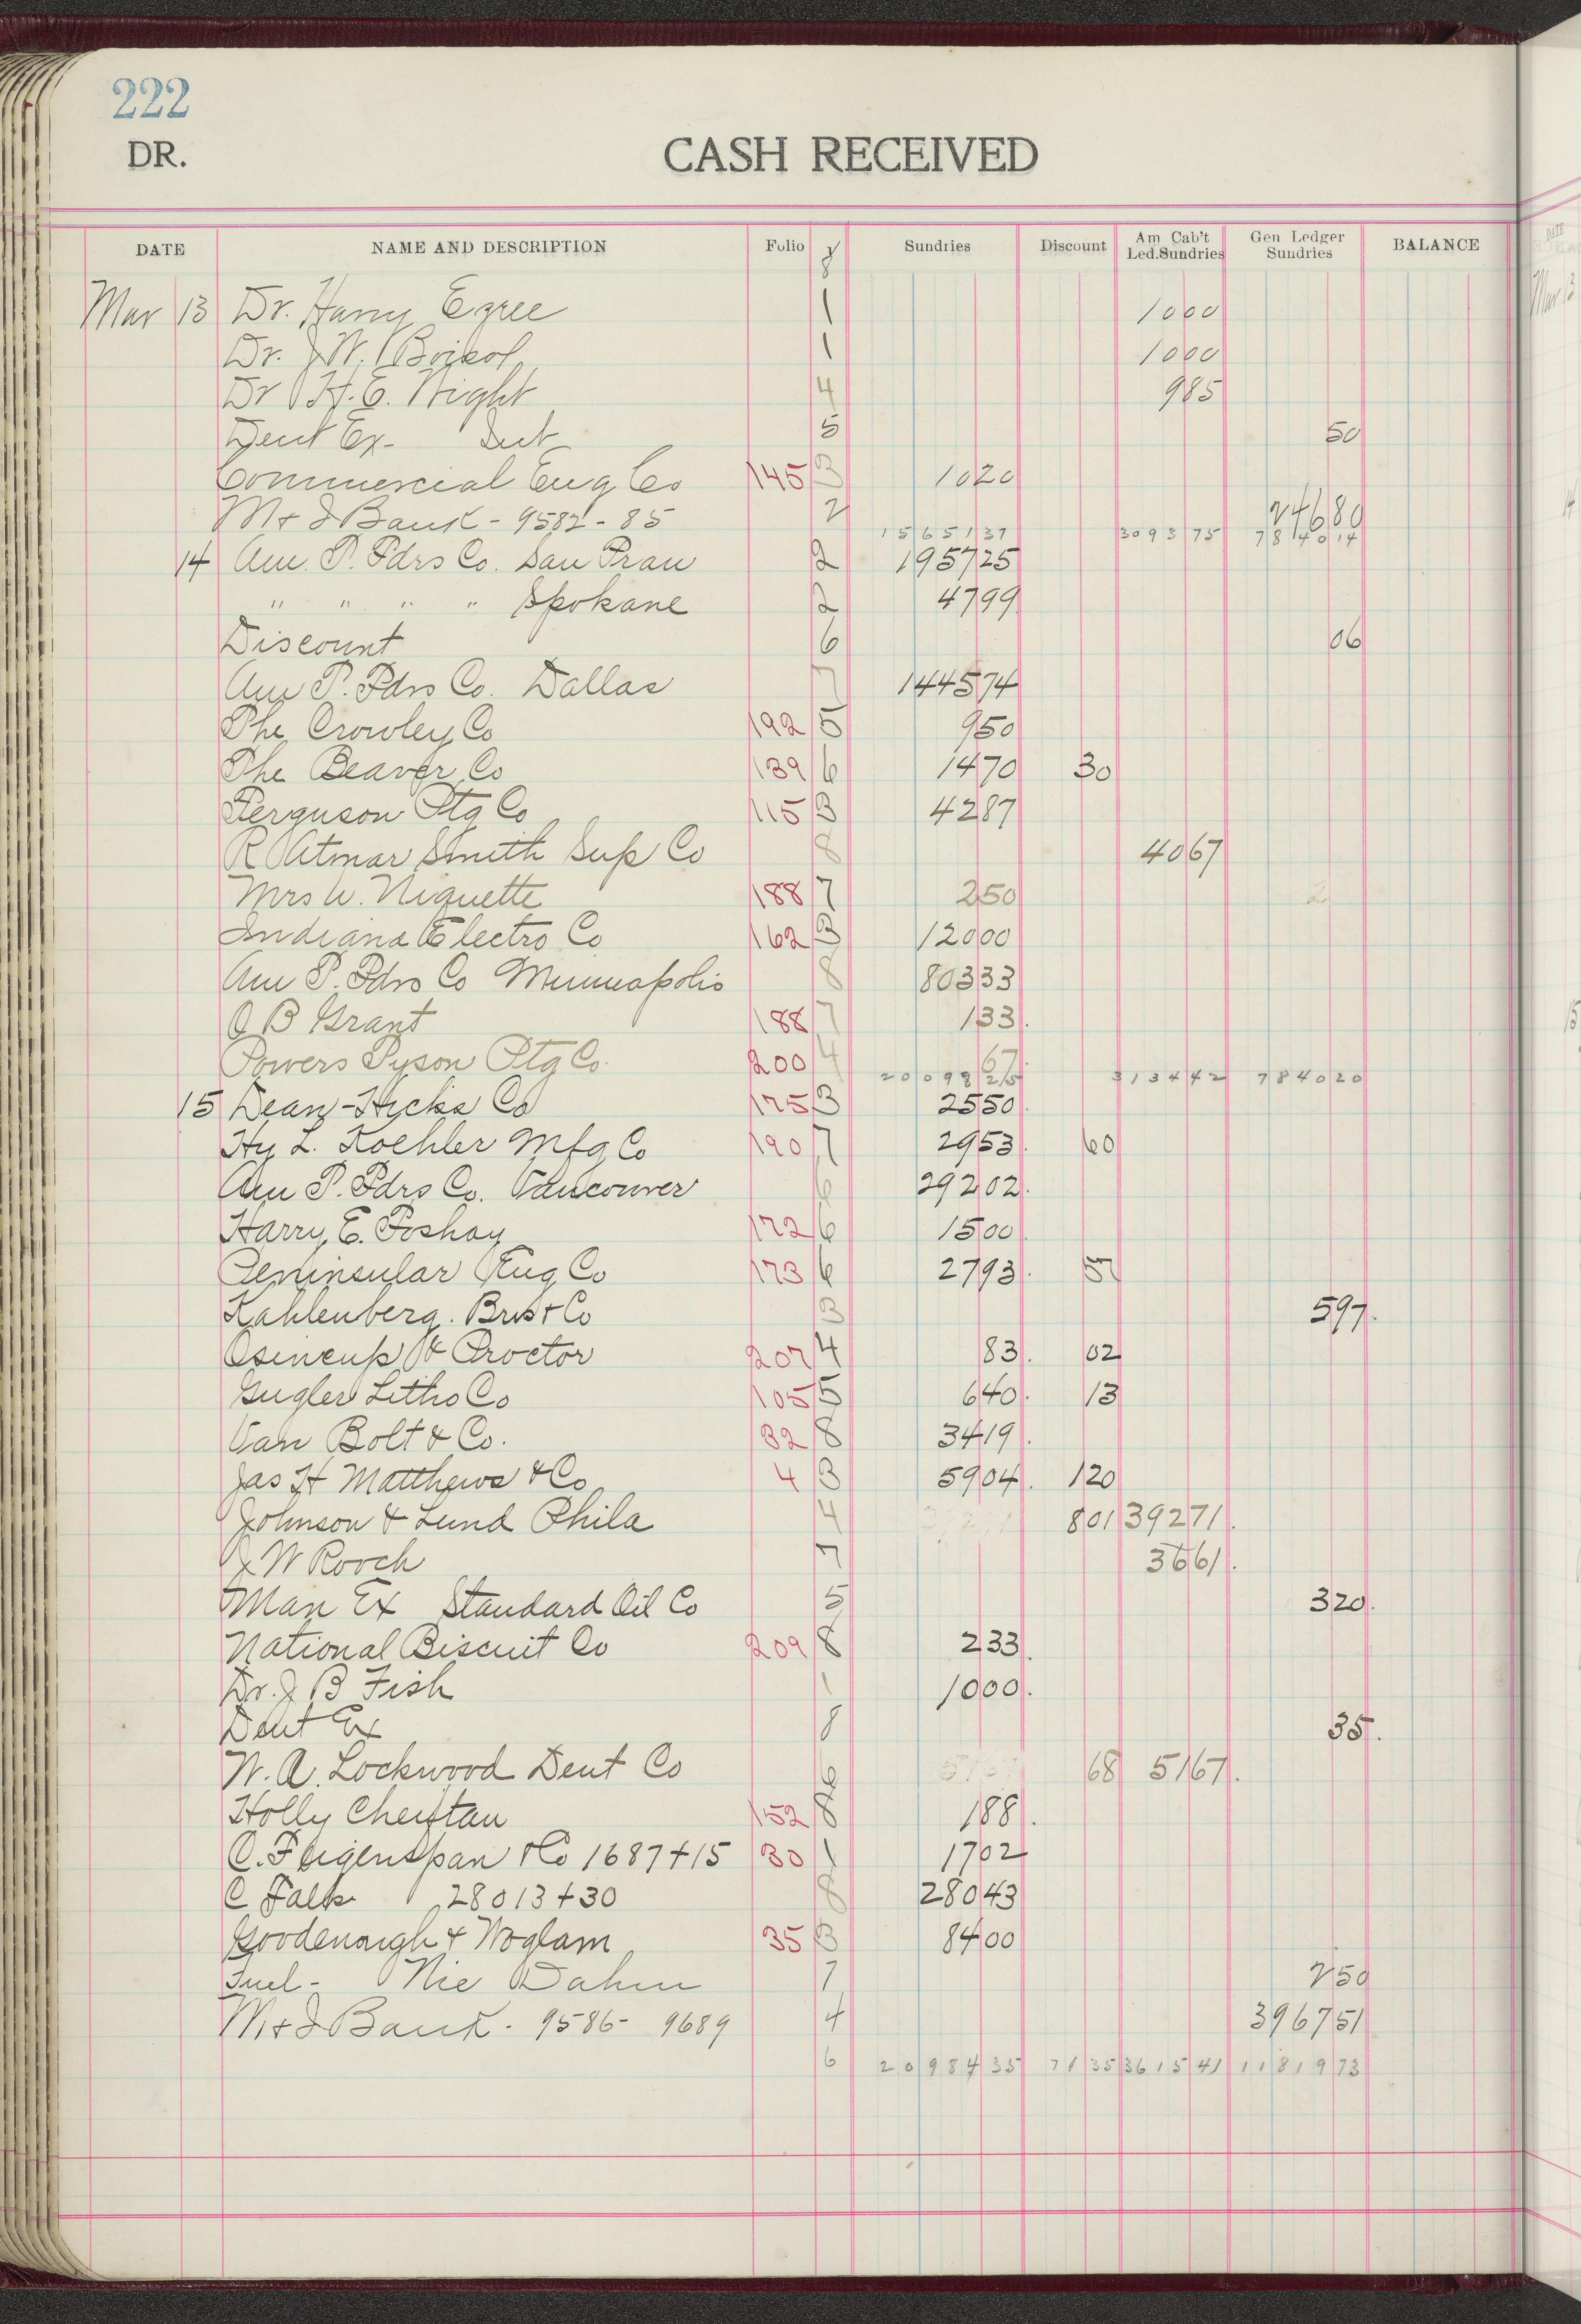 222
DR.
CASH RECEIVED
DATE NAME AND DESCRIPTION Folio Sundries Discount Am Cab't Led.Sundries Gen Ledger Sundries BALANCE
8
Mar 13 Dr. Harry 1 1000
Dr. J. W. 1 1000
Dr H. E. 4 985
Dent Ex- 5 50
Commercial Eng Co 145 3 1020
M & I Bank - 9582 - 85 2 24680
1565137 309375 784014
14 Am. P. Fdrs Co. San Fran 2 195725
" " " " Spokane 2 4799
Discount 6 06
Am P. Fdrs Co. Dallas 7 144574
The Crowley Co 192 5 950
The Beaver Co 139 6 1470 30
Ferguson Ptg Co 115 3 4287
R Smith Sup Co 8 4067
Mrs W. Niquette 188 7 250 2
Indiana Electro Co 162 3 12000
Am P. Fdrs Co Minneapolis 8 80333
O B Grant 188 7 133
Powers Tyson Ptg Co. 200 4 67
2009825 313442 784020
15 Dean-Hicks Co 175 3 2550
Hy L. Koehler Mfg Co 190 7 2953 60
Am P. Fdrs Co. Vancouver 6 29202
Harry E. Foshay 172 6 1500
Peninsular Eng Co 173 6 2793 57
Kahlenberg. Bros & Co 3 597
Osincup & Proctor 207 4 83 02
Gugler Litho Co 105 5 640 13
Van Bolt & Co. 32 8 3419
Jas H Matthews & Co 4 3 5904 120
Johnson & Lund Phila 4 801 39271
J W Rooch 7 3661
Man Ex Standard Oil Co 5 320
National Biscuit Co 209 8 233
Dr. J B Fish 1 1000
Dent Ex 8 35
W. A. Lockwood Dent Co 6 68 5167
Holly 152 8 188
C. Feigenspan & Co 1687 + 15 30 1 1702
C Falk 28013 + 30 8 28043
Goodenough & Woglam 35 3 8400
Fuel - Nic Dahm 7 250
M & I Bank - 9586 - 9689 4 396751
6 2098435 7135 361541 1181973